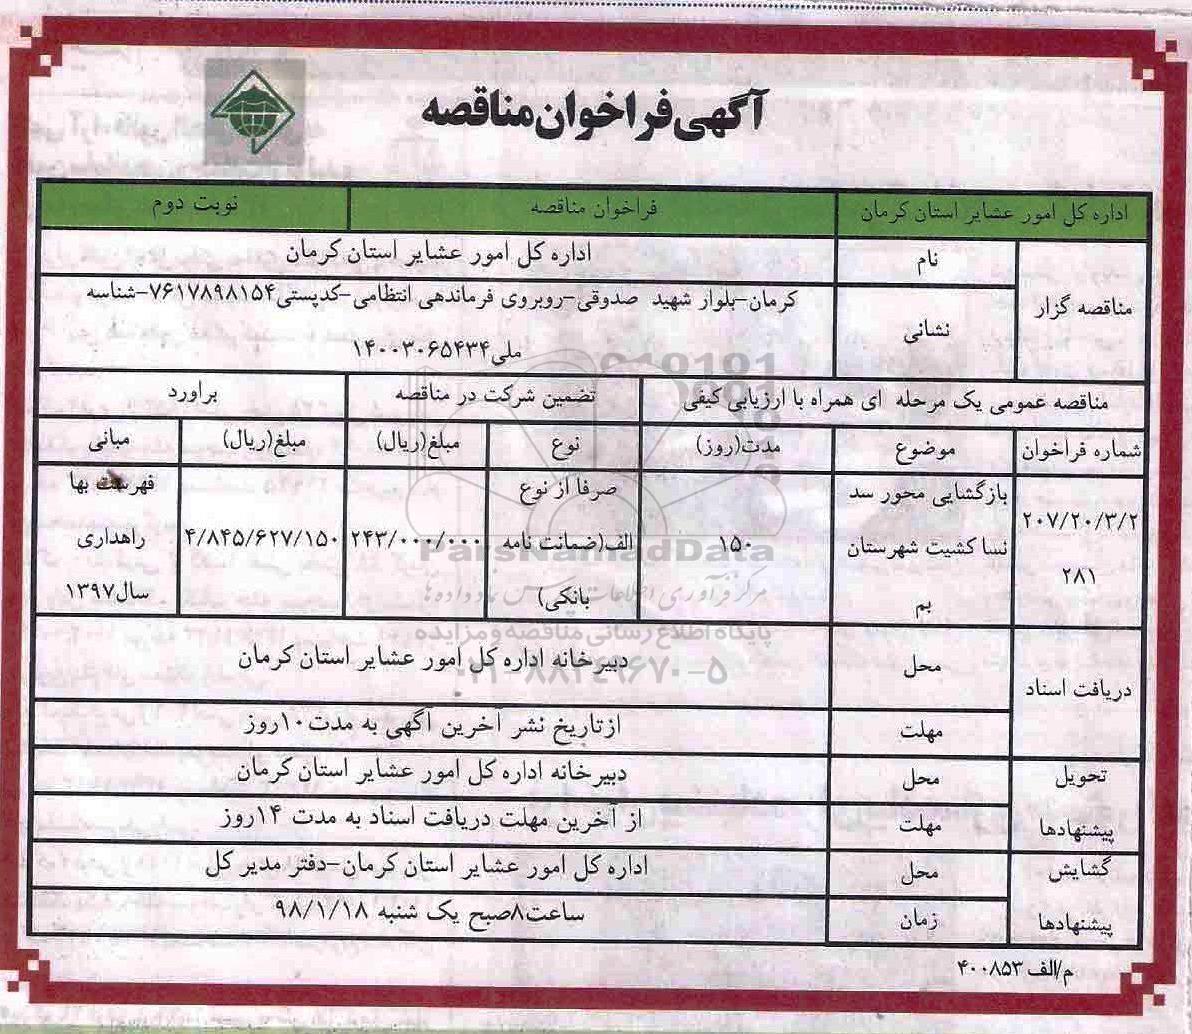 آگهی فراخوان مناقصه
اداره کل امور عشایر استان کرمان
فراخوان مناقصه
نوبت دوم
مناقصه گزار
نام
اداره کل امور عشایر استان کرمان
نشانی
کرمان-بلوار شهید صدوقی-روبروی فرماندهی انتظامی-کدپستی۷۶۱۷۸۹۸۱۵۴-شناسه
ملی۱۴۰۰۳۰۶۵۴۳۴
مناقصه عمومی یک مرحله ای همراه با ارزیابی کیفی
تضمین شرکت در مناقصه
براورد
شماره فراخوان
موضوع
مدت(روز)
نوع
مبلغ(ریال)
مبلغ(ریال)
مبانی
۲۰۷/۲۰/۳/۲
۲۸۱
بازگشایی محور سد
نسا کشیت شهرستان
بم
۱۵۰
صرفا از نوع
الف(ضمانت نامه
بانکی)
۲۴۳/۰۰۰/۰۰۰
۴/۸۴۵/۶۲۷/۱۵۰
فهرست بها
راهداری
سال۱۳۹۷
دریافت اسناد
محل
دبیرخانه اداره کل امور عشایر استان کرمان
مهلت
ازتاریخ نشر آخرین آگهی به مدت۱۰روز
تحویل
پیشنهادها
محل
دبیرخانه اداره کل امور عشایر استان کرمان
مهلت
از آخرین مهلت دریافت اسناد به مدت ۱۴روز
گشایش
پیشنهادها
محل
اداره کل امور عشایر استان کرمان-دفتر مدیر کل
زمان
ساعت۸صبح یک شنبه ۹۸/۱/۱۸
م/الف ۴۰۰۸۵۳
ParsNamadData
پایگاه اطلاع رسانی مناقصه و مزایده
۰۲۱-۸۸۳۴۹۶۷۰-۵